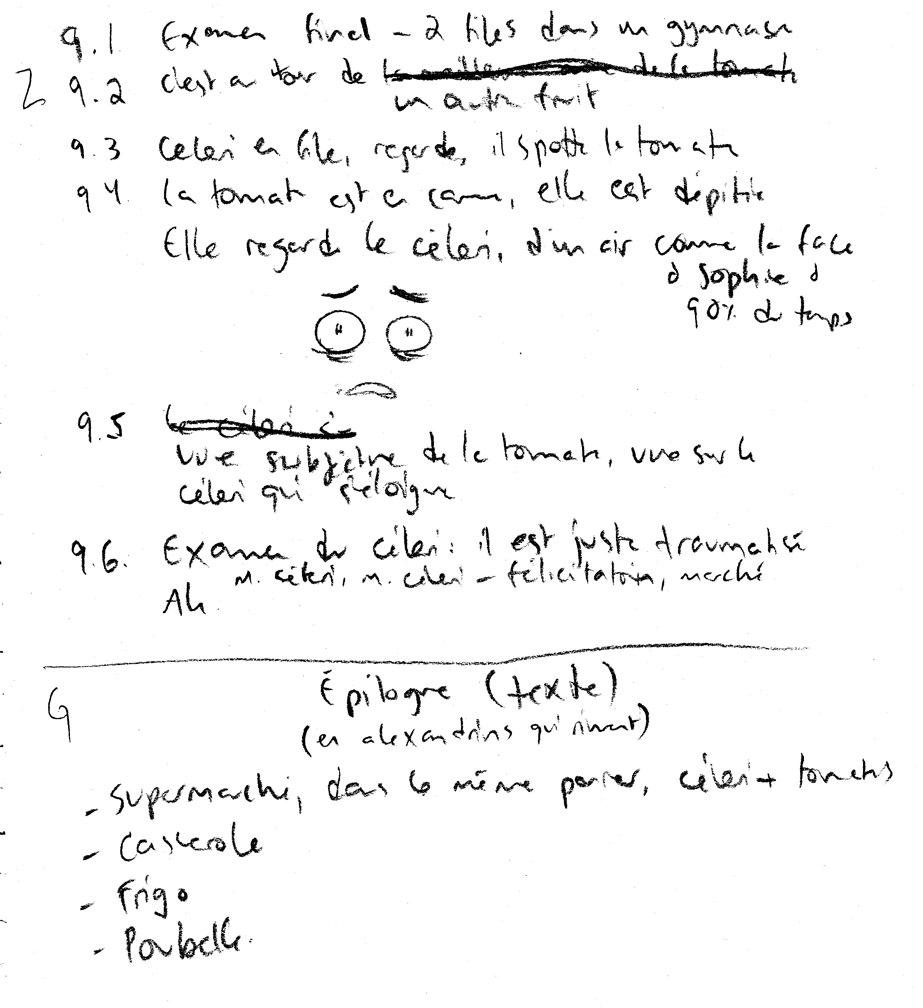 9.1 Examen final - 2 files dans un gymnase
2 9.2 C'est au tour de
un autre fruit
9.3 Céleri en file, regarde, il spotte la tomate
94 La tomate est en larme, elle est dépitée
Elle regarde le céleri, d'un air comme la face
à Sophie à
90% du temps
9.5 le céleri
vue subjective de la tomate, vue sur le
céleri qui s'éloigne
9.6. Examen du céleri: il est juste traumatisé
M. céleri, M. céleri - félicitation, marché
Ah
G
Épilogue (texte)
(en alexandrins qui riment)
- Supermarché, dans le même panier, céleri + tomates
- Casserole
- Frigo
- Poubelle.